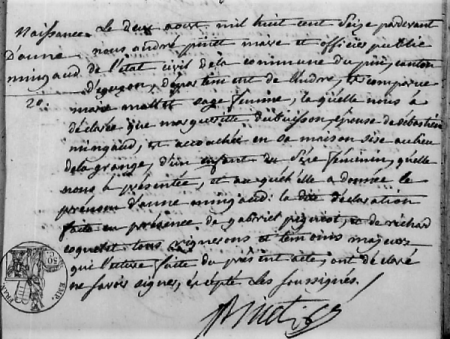 Naissance
D'anne
mingaud
20.
le deux aout mil huit cent Seize pardevant
nous andré pinet maire et officier public
de l'état civil de la commune du pin, canton
d'eguzon, département de l'indre, Est comparue
marie sage femme, laquelle nous a
déclarée que marguerite dubuisson, épouse de Sébastien
mingaud, est accouchée en sa maison sise au lieu
de la grange, d'un enfant du Sexe féminin, qu'elle
nous a présentée, et auquel elle a donnée le
prénom d'anne mingaud: la dite déclaration
faite en présence de gabriel et de richard
tous et temoins majeurs
qui lecture faite du présent acte, ont déclaré
ne savoir signer, excepté les soussignés.
Pinet